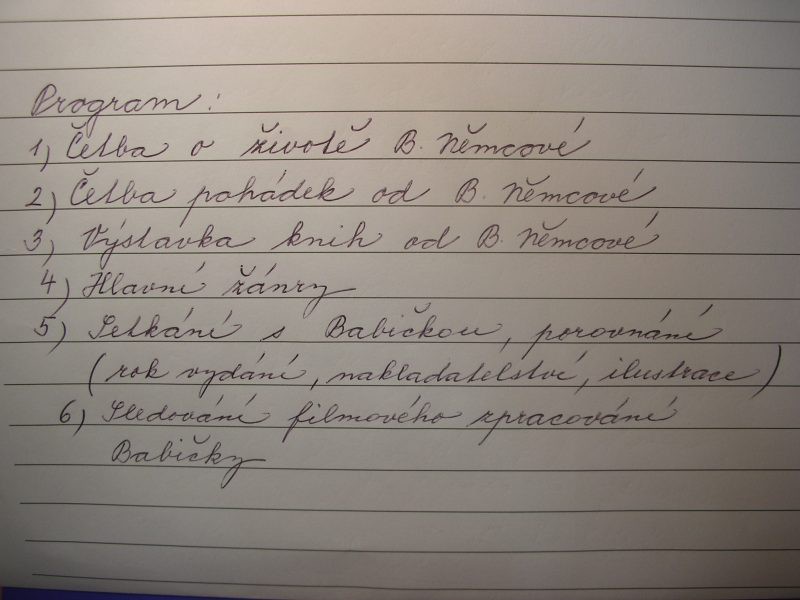 Program:
1) Četba o životě B. Němcové
2) Četba pohádek od B. Němcové
3) Výstavka knih od B. Němcové
4) Hlavní žánry
5) Setkání s Babičkou, porovnání
(rok vydání, nakladatelství, ilustrace)
6) Sledování filmového zpracování
Babičky